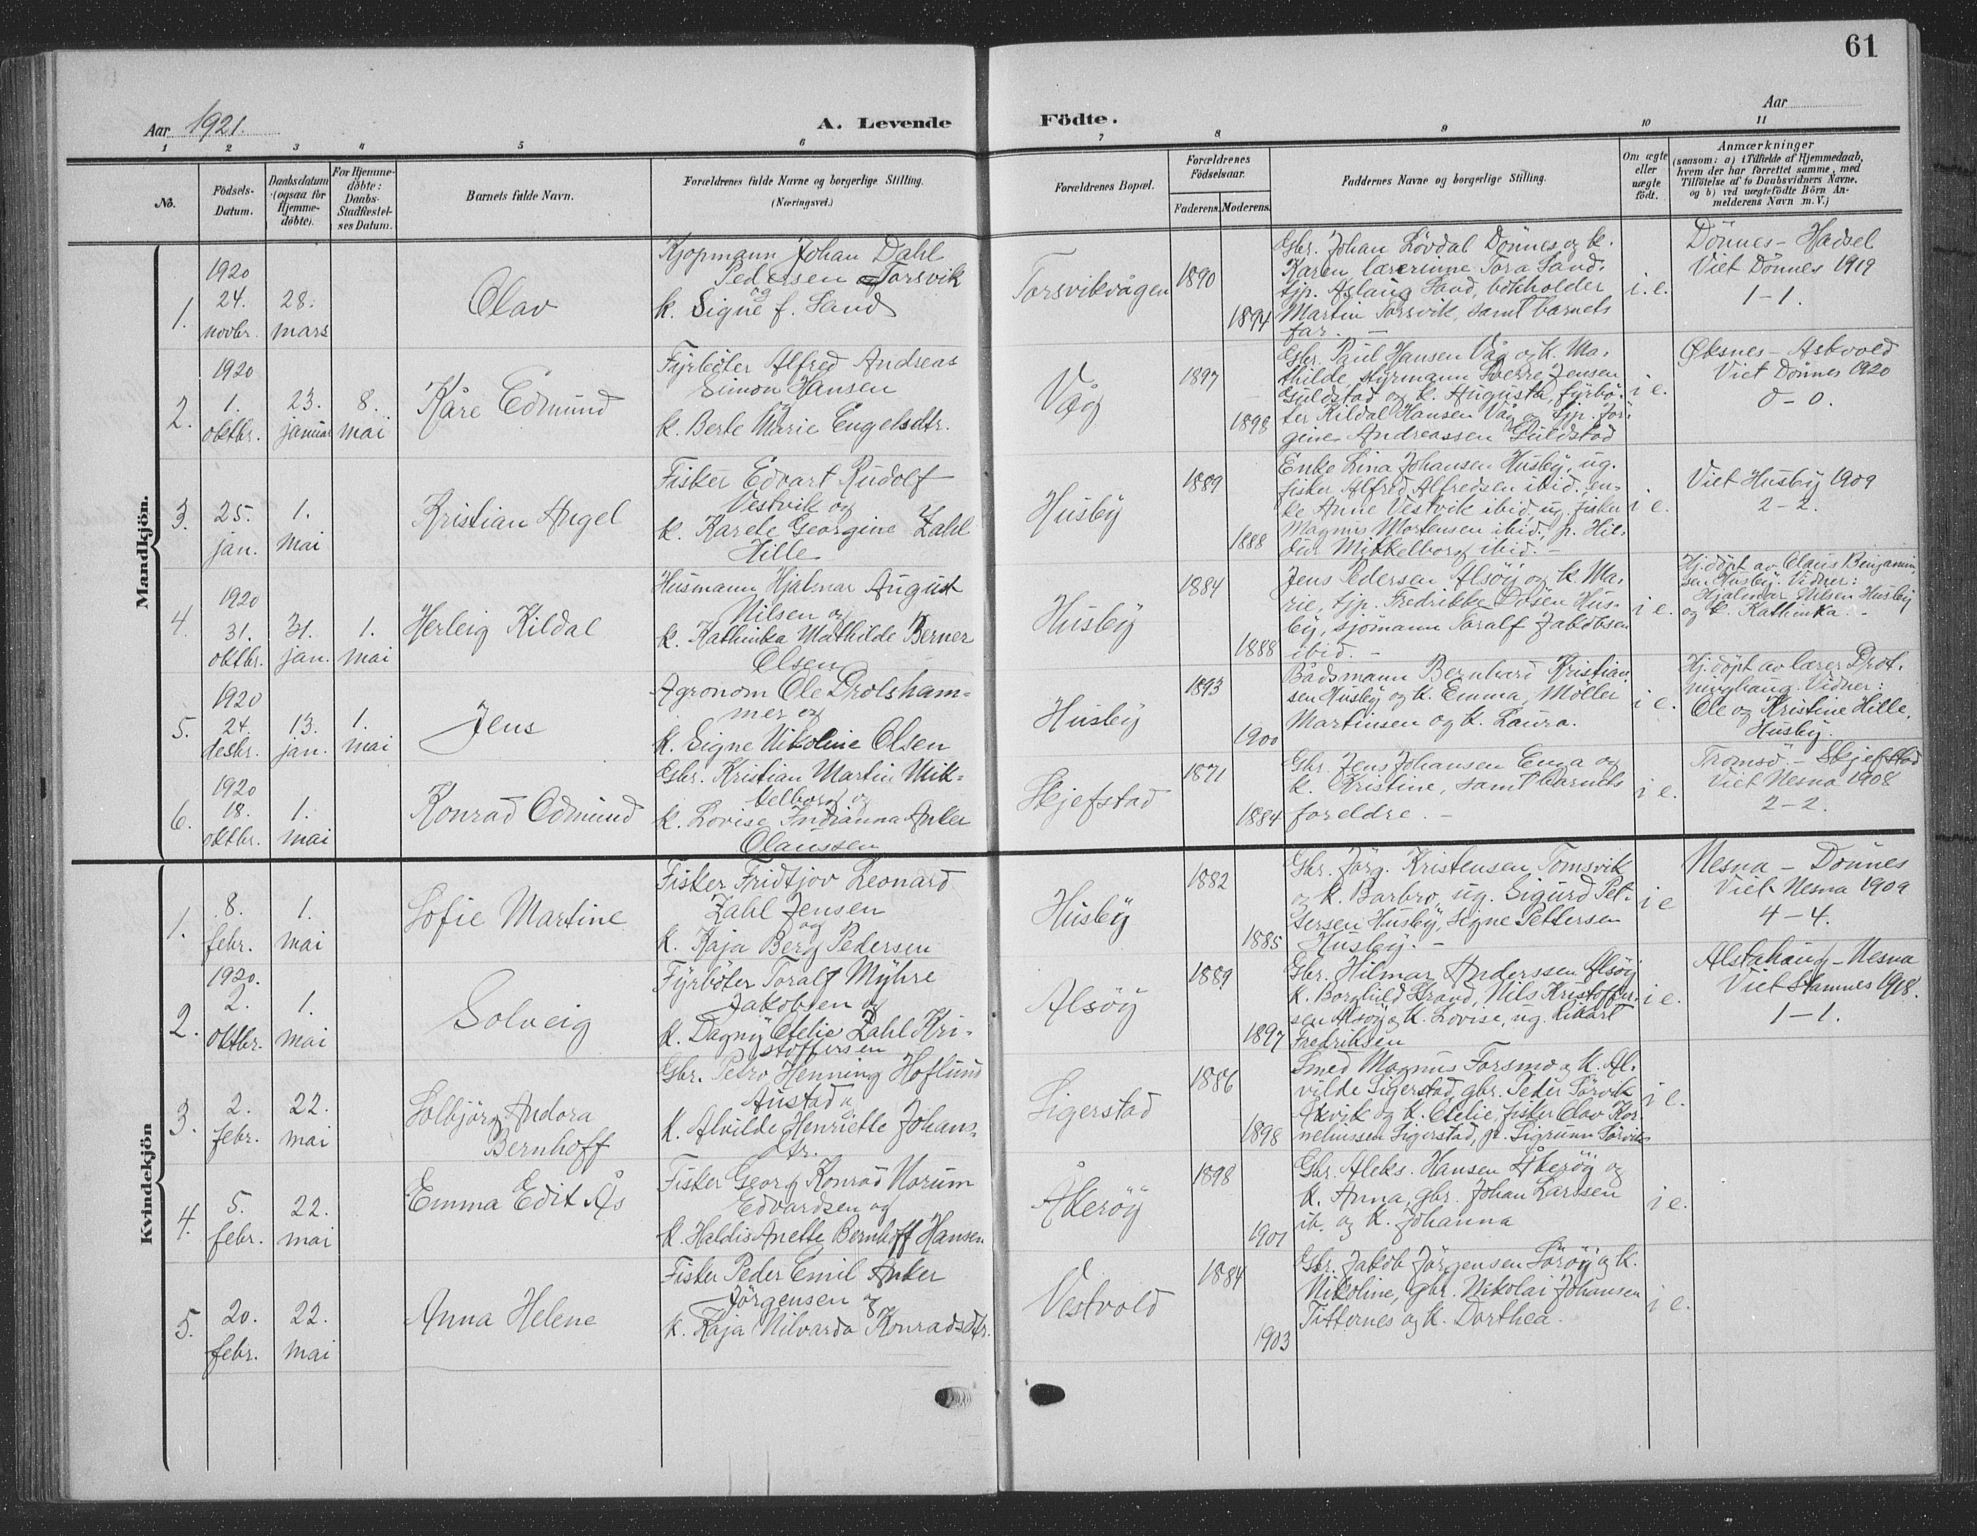 61
Aar 1921.
A. Levende
Födte.
Aar
1 2 3 4 5 6 7 8 9 10 11
No.
Födsels-
Datum.
Daabsdatum
(ogsaa for
Hjemme-
döbte).
For Hjemme-
döbte:
Daabs-
Stadfæstel-
ses Datum.
Barnets fulde Navn.
Forældrenes fulde Navne og borgerlige Stilling.
(Næringsvei.)
Forældrenes Bopæl.
Forældrenes
Födselsaar.
Faderens. Moderens.
Faddernes Navne og borgerlige Stilling.
Om ægte
eller
uægte
födt.
Anmærkninger
(saasom: a) i Tilfælde af Hjemmedaab,
hvem der har forrettet samme, med
Tilföielse af to Daabsvidners Navne,
og b) ved uægtefödte Börn An-
melderens Navn m. V.)
Mandkjön.
1.
1920
24.
novbr.
28.
mars
Olav
Kjøpmann Johan Dahl
Pedersen Torsvik
og
k. Signe f. Sand
Torsvikvågen
1890
1894
Gbr. Johan Lövdal Dönnes og k.
Karen lærerinne Tora Sand,
tjp. Aslaug Sand, bokholder
Martin Torsvik, samt barnets
far. -
i. e.
Dönnes - Hadsel
Viet Dönnes 1919
1 - 1.
2.
1920
1.
oktbr.
23.
januar
8.
mai
Kåre Edmund
Fyrbøter Alfred Andreas
Simon Hansen
og
k. Berte Marie Engelsdtr.
Våg
1897
1898
Gbr. Paul Hansen Våg og k. Ma-
thilde, styrmann Sverre Jensen
Guldstad og k. Augusta, fyrbö-
ter Kildal Hansen Våg og tjp. Jör-
gine Andreassen Guldstad
i e.
Øksnes - Askvold
Viet Dönnes 1920
0 - 0.
3.
25.
jan.
1.
mai
Kristian Angel
Fisker Edvart Rudolf
Vestvik og
k. Karele Georgine Zahl
Hille
Husby
1889
1888
Enke Lina Johansen Husby, ug.
fisker Alfred Alfredsen ibid., en-
ke Anne Vestvik ibid, ug. fisker
Magnus Mortensen ibid, p. Hil-
dur Mikkelborg ibid. -
i e.
Viet Husby 1909
2 - 2.
4.
1920
31.
oktbr.
31.
jan.
1.
mai
Herleig Kildal
Husmann Hjalmar August
Nilsen og
k. Kathinka Mathilde Berner
Olsen
Husby
1884
1888
Jens Pedersen Alsöy og k. Ma-
rie, tjp. Fredrikke Dösen Hus-
by, sjömann Toralf Jakobsen
ibid. -
i e.
Hj.döpt av Claus Benjamin-
sen Husby. Vidner:
Hjalmar Nilsen Husby
og k. Kathinka. -
5.
1920
24.
desbr.
13.
jan.
1.
mai
Jens
Agronom Ole Drolsham-
mer og
k. Signe Nikoline Olsen
Husby
1893
1900
Bådsmann Bernhard Kristian-
sen Husby og k. Emma, Möller
Martinsen og k. Laura.
i e.
Hj.döpt av lærer Drot-
ninghaug. Vidner:
Ole og Kristine Hille,
Husby.
6.
1920
18.
oktbr.
1.
mai
Konrad Odmund
Gbr. Kristian Martin Mik-
kelborg og
k. Lovise Indianna Anker
Olaussen
Skjefstad
1871
1884
Gbr. Jens Johansen Enga og
k. Kristine, samt barnets
foreldre. -
i e.
Tromsö. - Skjefstad
Viet Nesna 1908
2 - 2.
Kvindekjön
1.
8.
febr.
1.
mai
Sofie Martine
Fisker Fridtjov Leonard
Zahl Jensen
og
k. Kaja Berg Pedersen
Husby
1882
1885
Gbr. Jörg. Kristensen Tomsvik
og k. Barbro, ug. Sigurd Pet-
tersen Husby, Signe Pettersen
Husby. -
i e
Nesna - Dönnes
Viet Nesna 1909
4 - 4.
2.
1920.
2.
oktbr.
1.
mai
Solveig
Fyrbøter Toralf Myhre
Jakobsen og
k. Dagny Ofelie Zahl Kri-
stoffersen
Alsöy
1889
1897
Gbr. Hilmar Anderssen Alsöy
k. Borghild Strand, Nils Kristoffer-
sen Alsöy og k. Lovise, ug. Rikart
Fredriksen
i e.
Alstahaug - Nesna
Viet Stamnes 1918.
1 - 1.
3.
2.
febr.
22.
mai
Solbjörg Andora
Bernhoff
Gbr. Petro Henning Hoflund
Austad og
k. Alvilde Henriette Johans-
dtr.
Sigerstad
1886
1898
Smed Magnus Forsmo og k. Al-
vilde Sigerstad, gbr. Peder Sörvik
Akvik og k. Ofelie, fisker Olav Kor-
neliussen Sigerstad, p. Sigrunn Sörvik
i e.
4.
5.
febr.
22.
mai
Emma Edit Ås
Fisker Georg Konrad Norum
Edvardsen og
k. Haldis Anette Bernhoff Hansen
Åkeröy
1898
1901
Gbr. Aleks. Hansen Åkeröy og
k. Anna, gbr. Johan Larssen
ib. og k. Johanna
i e.
5.
20.
febr.
22.
mai
Anna Helene
Fisker Peder Emil Anker
Jörgensen og
k. Kaja Nilvarda Konradsdtr.
Vestvold
1884
1903
Gbr. Jakob Jörgensen Söröy og k.
Nikoline, gbr. Nikolai Johansen
Titternes og k. Dorthea.
i e.